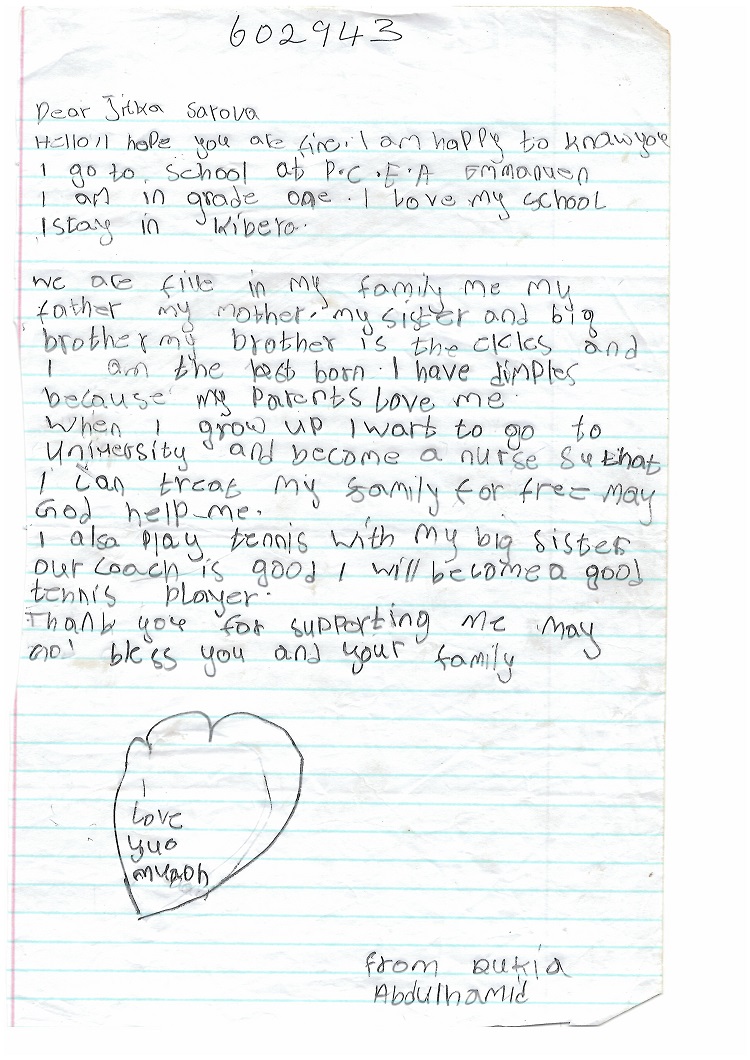 602943
Dear Jitka Sarova
Hello!I hope you are fine. I am happy to know you
I go to school at P.C.E.A Emmanuen
I am in grade one. I Love my school
I stay in Kibera.
we are five in my family me my
father my mother. my sister and big
brother my brother is the and
I am the last born. I have dimples
because my Parents Love me.
When I grow up I want to go to
University and become a nurse so that
I can treat my family for free May
God help me.
I also play tennis with my big sister
our coach is good I will become a good
tennis player.
Thank you for supporting me may
bless you and your family
I
Love
yuo
from Rukia
Abdulhamid